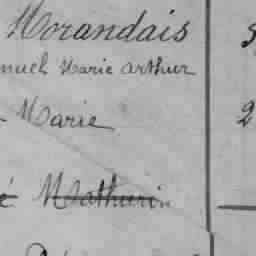 Morandais
nuel Marie Arthur
Marie 2
é Mathurin